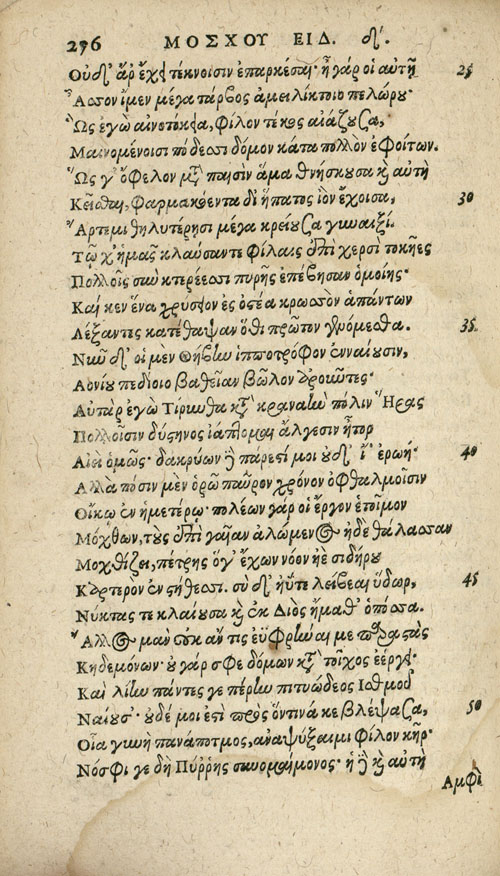 276 ΜΟΣΧΟΥ ΕΙΔ. δʹ.
Οὐδ᾽ ἄρ᾽ ἔχε τέκνοισιν ἐπαρκέσαι· ἦ γάρ οἱ αὐτῇ 25
Ἆσσον ἴμεν μέγα τάρβος ἀμειλίκτοιο πελώρου·
Ὣς ἐγὼ αἰνοτόκεια, φίλον τέκος αἰάζουσα,
Μαινομένοισι πόδεσσι δόμον κάτα πολλὸν ἐφοίτων.
Ὥς γ᾽ ὄφελον μετὰ παισὶν ἅμα θνήσκουσα καὶ αὐτὴ
Κεῖσθαι, φαρμακόεντα δι᾽ ἥπατος ἰὸν ἔχοισα, 30
Ἄρτεμι θηλυτέρῃσι μέγα κρείουσα γυναιξί.
Τῷ χ᾽ ἡμᾶς κλαύσαντε φίλαις ἐπὶ χερσὶ τοκῆες
Πολλοῖς σὺν κτερέεσσι πυρῆς ἐπέβησαν ὁμοίης·
Καί κεν ἕνα χρύσειον ἐς ὀστέα κρωσσὸν ἁπάντων
Λέξαντες κατέθαψαν ὅθι πρῶτον γενόμεσθα. 35
Νῦν δ᾽ οἱ μὲν Θήβην ἱπποτρόφον ἐνναίουσιν,
Ἀονίου πεδίοιο βαθεῖαν βῶλον ἀροῦντες·
Αὐτὰρ ἐγὼ Τίρυνθα κατὰ κραναὴν πόλιν Ἥρας
Πολλοῖσιν δύστηνος ἰάπτομαι ἄλγεσιν ἦτορ
Αἰεὶ ὁμῶς· δακρύων δὲ πάρεστί μοι οὐδ᾽ ἴ᾽ ἐρωή· 40
Ἀλλὰ πόσιν μὲν ὁρῶ παῦρον χρόνον ὀφθαλμοῖσιν
Οἴκῳ ἐν ἡμετέρῳ· πολέων γάρ οἱ ἔργον ἑτοῖμον
Μόχθων, τοὺς ἐπὶ γαῖαν ἀλώμενος ἠδὲ θάλασσαν
Μοχθίζει, πέτρης ὅγ᾽ ἔχων νόον ἠὲ σιδήρου
Κάρτερον ἐν στήθεσσι. σὺ δ᾽ ἠΰτε λείβεαι ὕδωρ, 45
Νύκτας τε κλαίουσα καὶ ἐκ Διὸς ἤμαθ᾽ ὁπόσσα.
Ἄλλος μὰν οὐκ ἄν τις ἐϋφρήναι με παραστὰς
Κηδεμόνων· οὐ γάρ σφε δόμων κατὰ τοῖχος ἐέργει·
Καὶ λίην πάντες γε πέρην πιτυώδεος Ἰσθμοῦ
Ναίουσ᾽· οὐδέ μοι ἐστὶ πρὸς ὅντινά κε βλέψασα, 50
Οἷα γυνὴ πανάποτμος, ἀναψύξαιμι φίλον κῆρ·
Νόσφι γε δὴ Πύρρης συνομαίμονος· ἡ δὲ καὶ αὐτὴ
Ἀμφὶ